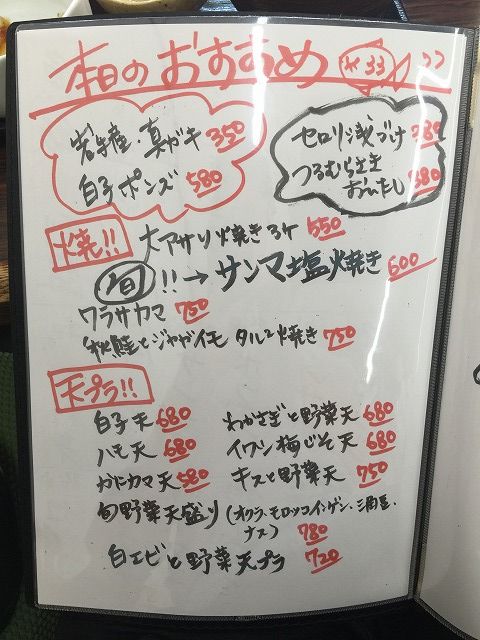 本日のおすすめ
岩手産・真ガキ 350
白子ポンズ 580
セロリ浅づけ 380
つるむらさき
おひたし 380
焼!!
大アサリ焼き 2ケ 550
旬!!→サンマ塩焼き 600
ワラサカマ 750
秋鮭とジャガイモ タルタル焼き 750
天プラ!!
白子天 680
わかさぎと野菜天 680
ハモ天 680
イワシ梅じそ天 680
カドカマ天 580
キスと野菜天 750
旬野菜天盛り(オクラ、モロッコインゲン、三角豆、
ナス) 780
白エビと野菜天プラ 720